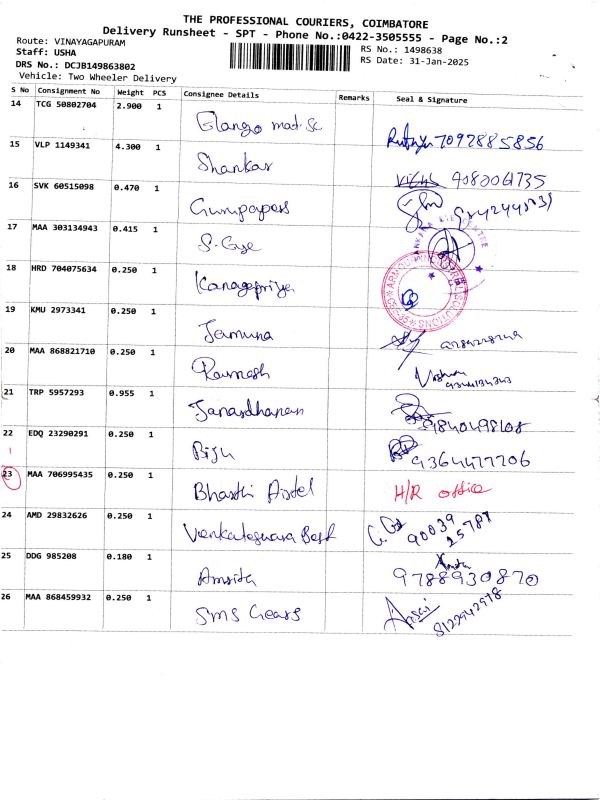 THE PROFESSIONAL COURIERS, COIMBATORE
Delivery Runsheet - SPT - Phone No.:0422-3505555 - Page No.:2
Route: VINAYAGAPURAM
RS No.: 1498638
Staff: USHA
RS Date: 31-Jan-2025
DRS No.: DCJB149863802
Vehicle: Two Wheeler Delivery
S No Consignment No Weight PCS Consignee Details Remarks Seal & Signature
14 TCG 50802704 2.900 1 Elango mat.sc 7097885856
15 VLP 1149341 4.300 1 Shankar 9080061735
16 SVK 60515098 0.470 1
17 MAA 303134943 0.415 1
18 HRD 704075634 0.250 1 Kanagapriya
19 KMU 2973341 0.250 1 Jamuna
20 MAA 868821710 0.250 1 Ramesh
21 TRP 5957293 0.955 1 Janardhanan 9840498108
22 EDQ 23290291 0.250 1 Biju 9364477706
23 MAA 706995435 0.250 1 Bharthi Airtel H/R office
24 AMD 29832626 0.250 1 Venkateswara 90039 25787
25 DDG 985208 0.180 1 Amrita 9788930870
26 MAA 868459932 0.250 1 SMS Gears 8122942978